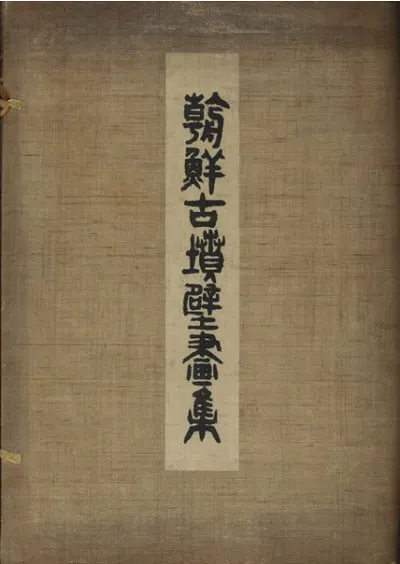 朝鮮古墳壁畫集